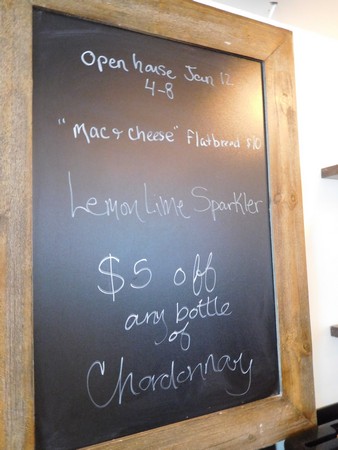 Open house Jan 12
4-8
"Mac & cheese" Flatbread $10
Lemon Lime Sparkler
$5 off
any bottle
of
Chardonnay